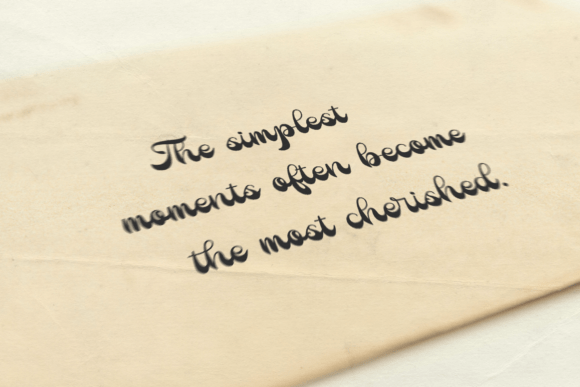 The simplest
moments often become
the most cherished.